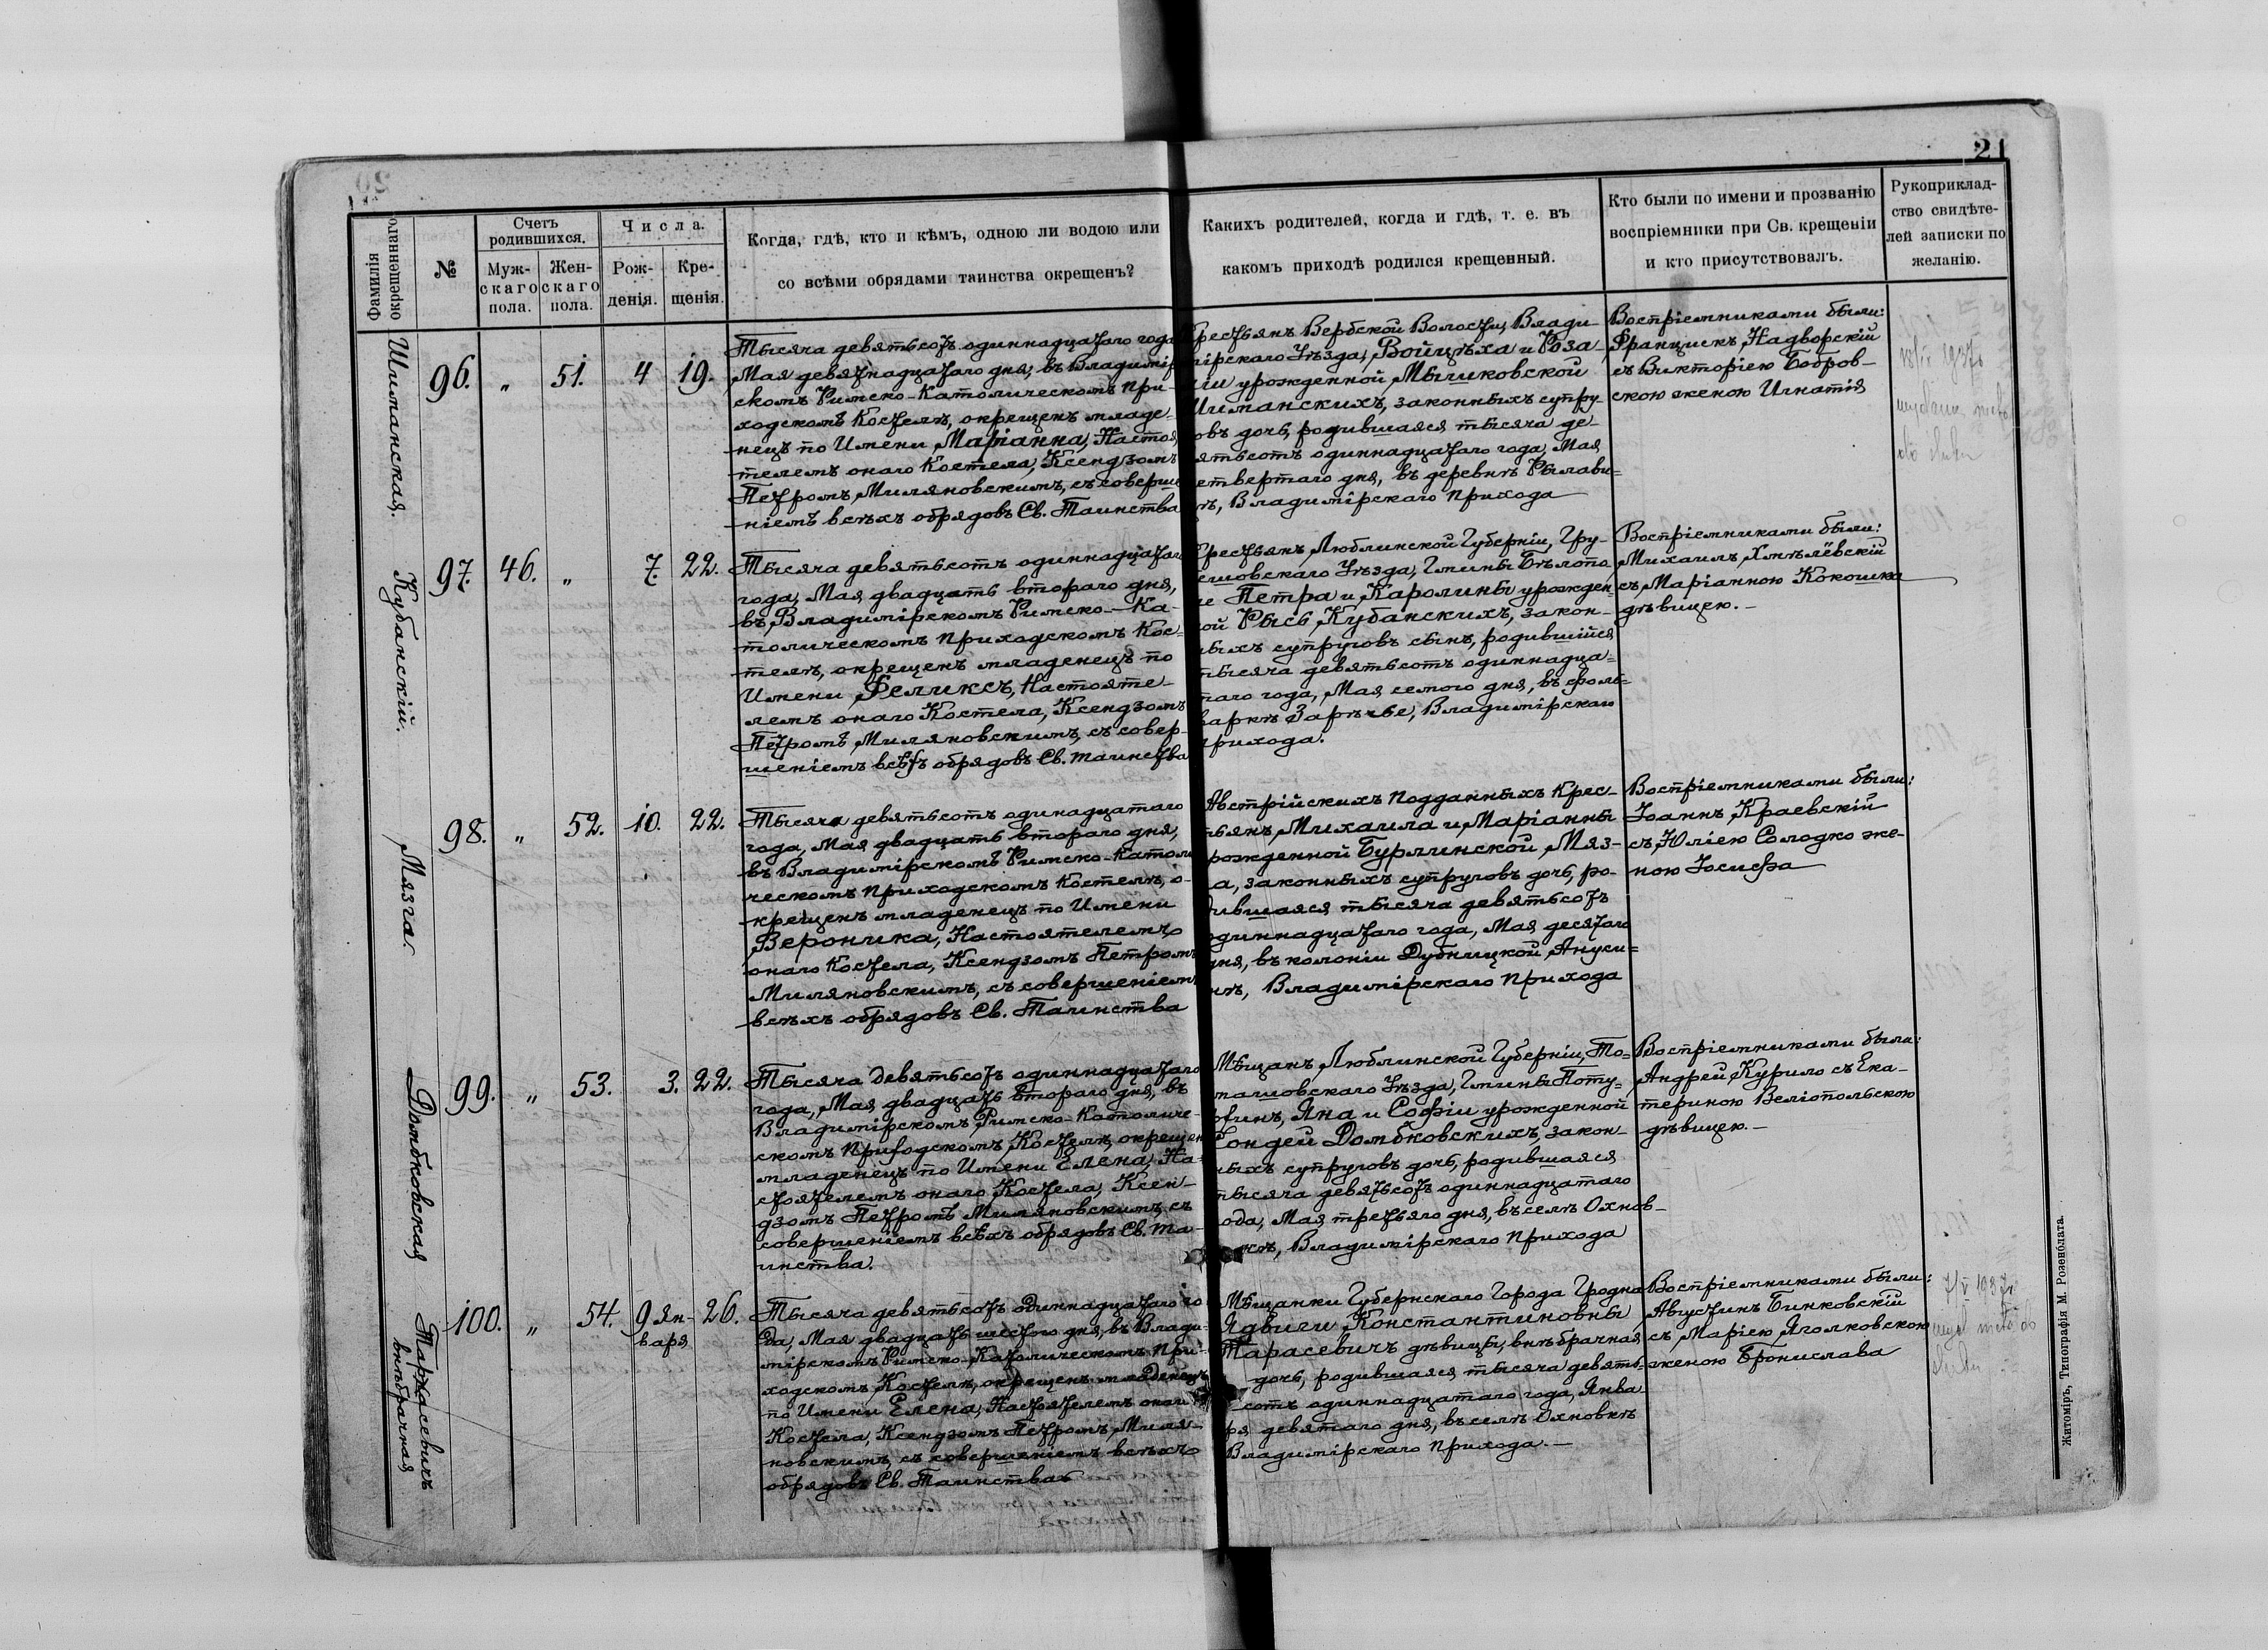 21
Фамилія окрещеннаго
№
Счетъ родившихся.
Мужскаго пола.
Женскаго пола.
Числа.
Рожденія.
Крещенія.
Когда, гдѣ, кто и кѣмъ, одною ли водою или
со всѣми обрядами таинства окрещенъ?
Какихъ родителей, когда и гдѣ, т. е. въ
какомъ приходѣ родился крещенный.
Кто были по имени и прозванію
воспріемники при Св. крещеніи
и кто присутствовалъ.
Рукоприклад-
ство свидѣте-
лей записки по
желанію.
Шиманская.
96. „ 51. 4 19.
Тысяча девятьсотъ одиннадцатаго года
Мая девятнадцатаго дня, въ Владимір
скомъ Римско-Католическомъ При-
ходскомъ Костелѣ, окрещенъ младе-
нецъ по Имени Маріанна, Настоя
телемъ онаго Костела, Ксендзомъ
Петромъ Миляновскимъ, съ соверше
ніемъ всѣхъ обрядовъ Св. Таинства
рестьянъ Вербской Волости, Влади-
мірскаго Уѣзда, Войцѣха и Роза-
ліи урожденной Мычковской
Шиманскихъ, законныхъ супру-
овъ дочь, родившаяся тысяча де-
ятьсотъ одиннадцатаго года, Мая
етвертаго дня, въ деревнѣ Рылави-
ѣ, Владимірскаго прихода
Воспріемниками были:
Францискъ Надворскій
съ Викторіею Бобров-
скою женою Игнатія
Кубанскій.
97. 46. „ 7. 22.
Тысяча девятьсотъ одиннадцатаго
года, Мая двадцать втораго дня,
въ Владимірскомъ Римско-Ка-
толическомъ приходскомъ Кос-
телѣ, окрещенъ младенецъ по
Имени Феликсъ, Настояте-
лемъ онаго Костела, Ксендзомъ
Петромъ Миляновскимъ, съ совер-
шеніемъ всѣхъ обрядовъ Св. таинства
рестьянъ Люблинской Губерніи, Гру-
ешовскаго Уѣзда, Гмины Бѣлопо
ле Петра и Каролины урожден-
ой Рысь Кубанскихъ, закон-
ныхъ супруговъ сынъ, родившійся
тысяча девятьсотъ одиннадца-
таго года, Мая семого дня, въ фоль-
варкѣ Зарѣчье, Владимірскаго
прихода.
Воспріемниками были:
Михаилъ Хмѣлёвскій
съ Маріанною Кокошка
дѣвицею.-
Мязга.
98. „ 52. 10. 22.
Тысяча девятьсотъ одинадцатаго
года, Мая двадцать втораго дня,
въ Владимірскомъ Римско-Католи
ческомъ приходскомъ костелѣ, о-
крещенъ младенецъ по Имени
Вероника, Настоятелемъ
онаго Костела, Ксендзомъ Петромъ
Миляновскимъ, съ совершеніемъ
всѣхъ обрядовъ Св. Таинства
Австрійскихъ подданныхъ Крес-
тьянъ, Михаила и Маріанны
рожденной Бурлинской, Мяз-
а, законныхъ супруговъ дочь, ро-
дившаяся тысяча девятьсотъ
одиннадцатаго года, Мая десятаго
дня, въ колоніи Дубницкой, Ануси-
нѣ, Владимірскаго прихода
Воспріемниками были:
Іоаннъ Краевскій
съ Юліею Солодко же-
ною Іосифа
Домбковская
99. „ 53. 3. 22.
Тысяча девятьсотъ одиннадцатаго
года, Мая двадцать втораго дня, въ
Владимірскомъ Римско-Католиче-
скомъ приходскомъ Костелѣ, окрещен
младенецъ по Имени Елена, На-
стоятелемъ онаго Костела, Ксен-
дзомъ Петромъ Миляновскимъ, съ
совершеніемъ всѣхъ обрядовъ Св. та-
инства.
Мѣщанъ Люблинской Губерніи, То-
машовскаго Уѣзда, Гмины Поту-
ржинъ, Яна и Софіи урожденной
Сондей Домбковскихъ, закон-
ныхъ супруговъ дочь, родившаяся
тысяча девятьсотъ одиннадцатаго
ода, Мая третьяго дня, въ селѣ Охнов-
кѣ, Владимірскаго прихода
Воспріемниками были:
Андрей Курило съ Ека-
териною Веліопольскою
дѣвицею.-
Таржасевичъ
внѣбрачная
100. „ 54. 9 Ян-
варя 26.
Тысяча девятьсотъ одиннадцатаго го
да, Мая двадцать шестого дня, въ Влади-
мірскомъ Римско-Католическомъ При-
ходскомъ Костелѣ, окрещенъ младенецъ
по Имени Елена, Настоятелемъ онаго
Костела, Ксендзомъ Петромъ Миля-
новскимъ, съ совершеніемъ всѣхъ
обрядовъ Св. Таинства
Мѣщанки Губернскаго Города Гродна
Ядвиги Константиновны
Тарасевичъ дѣвицы, внѣбрачная
дочь, родившаяся тысяча девять-
сотъ одиннадцатаго года, Янва
ря девятаго дня, въ селѣ Охновкѣ
Владимірскаго прихода.-
Воспріемниками были:
Августинъ Бинковскій
съ Маріею Яголковскою
женою Бронислава
Житоміръ, Типографія М. Розенблата.